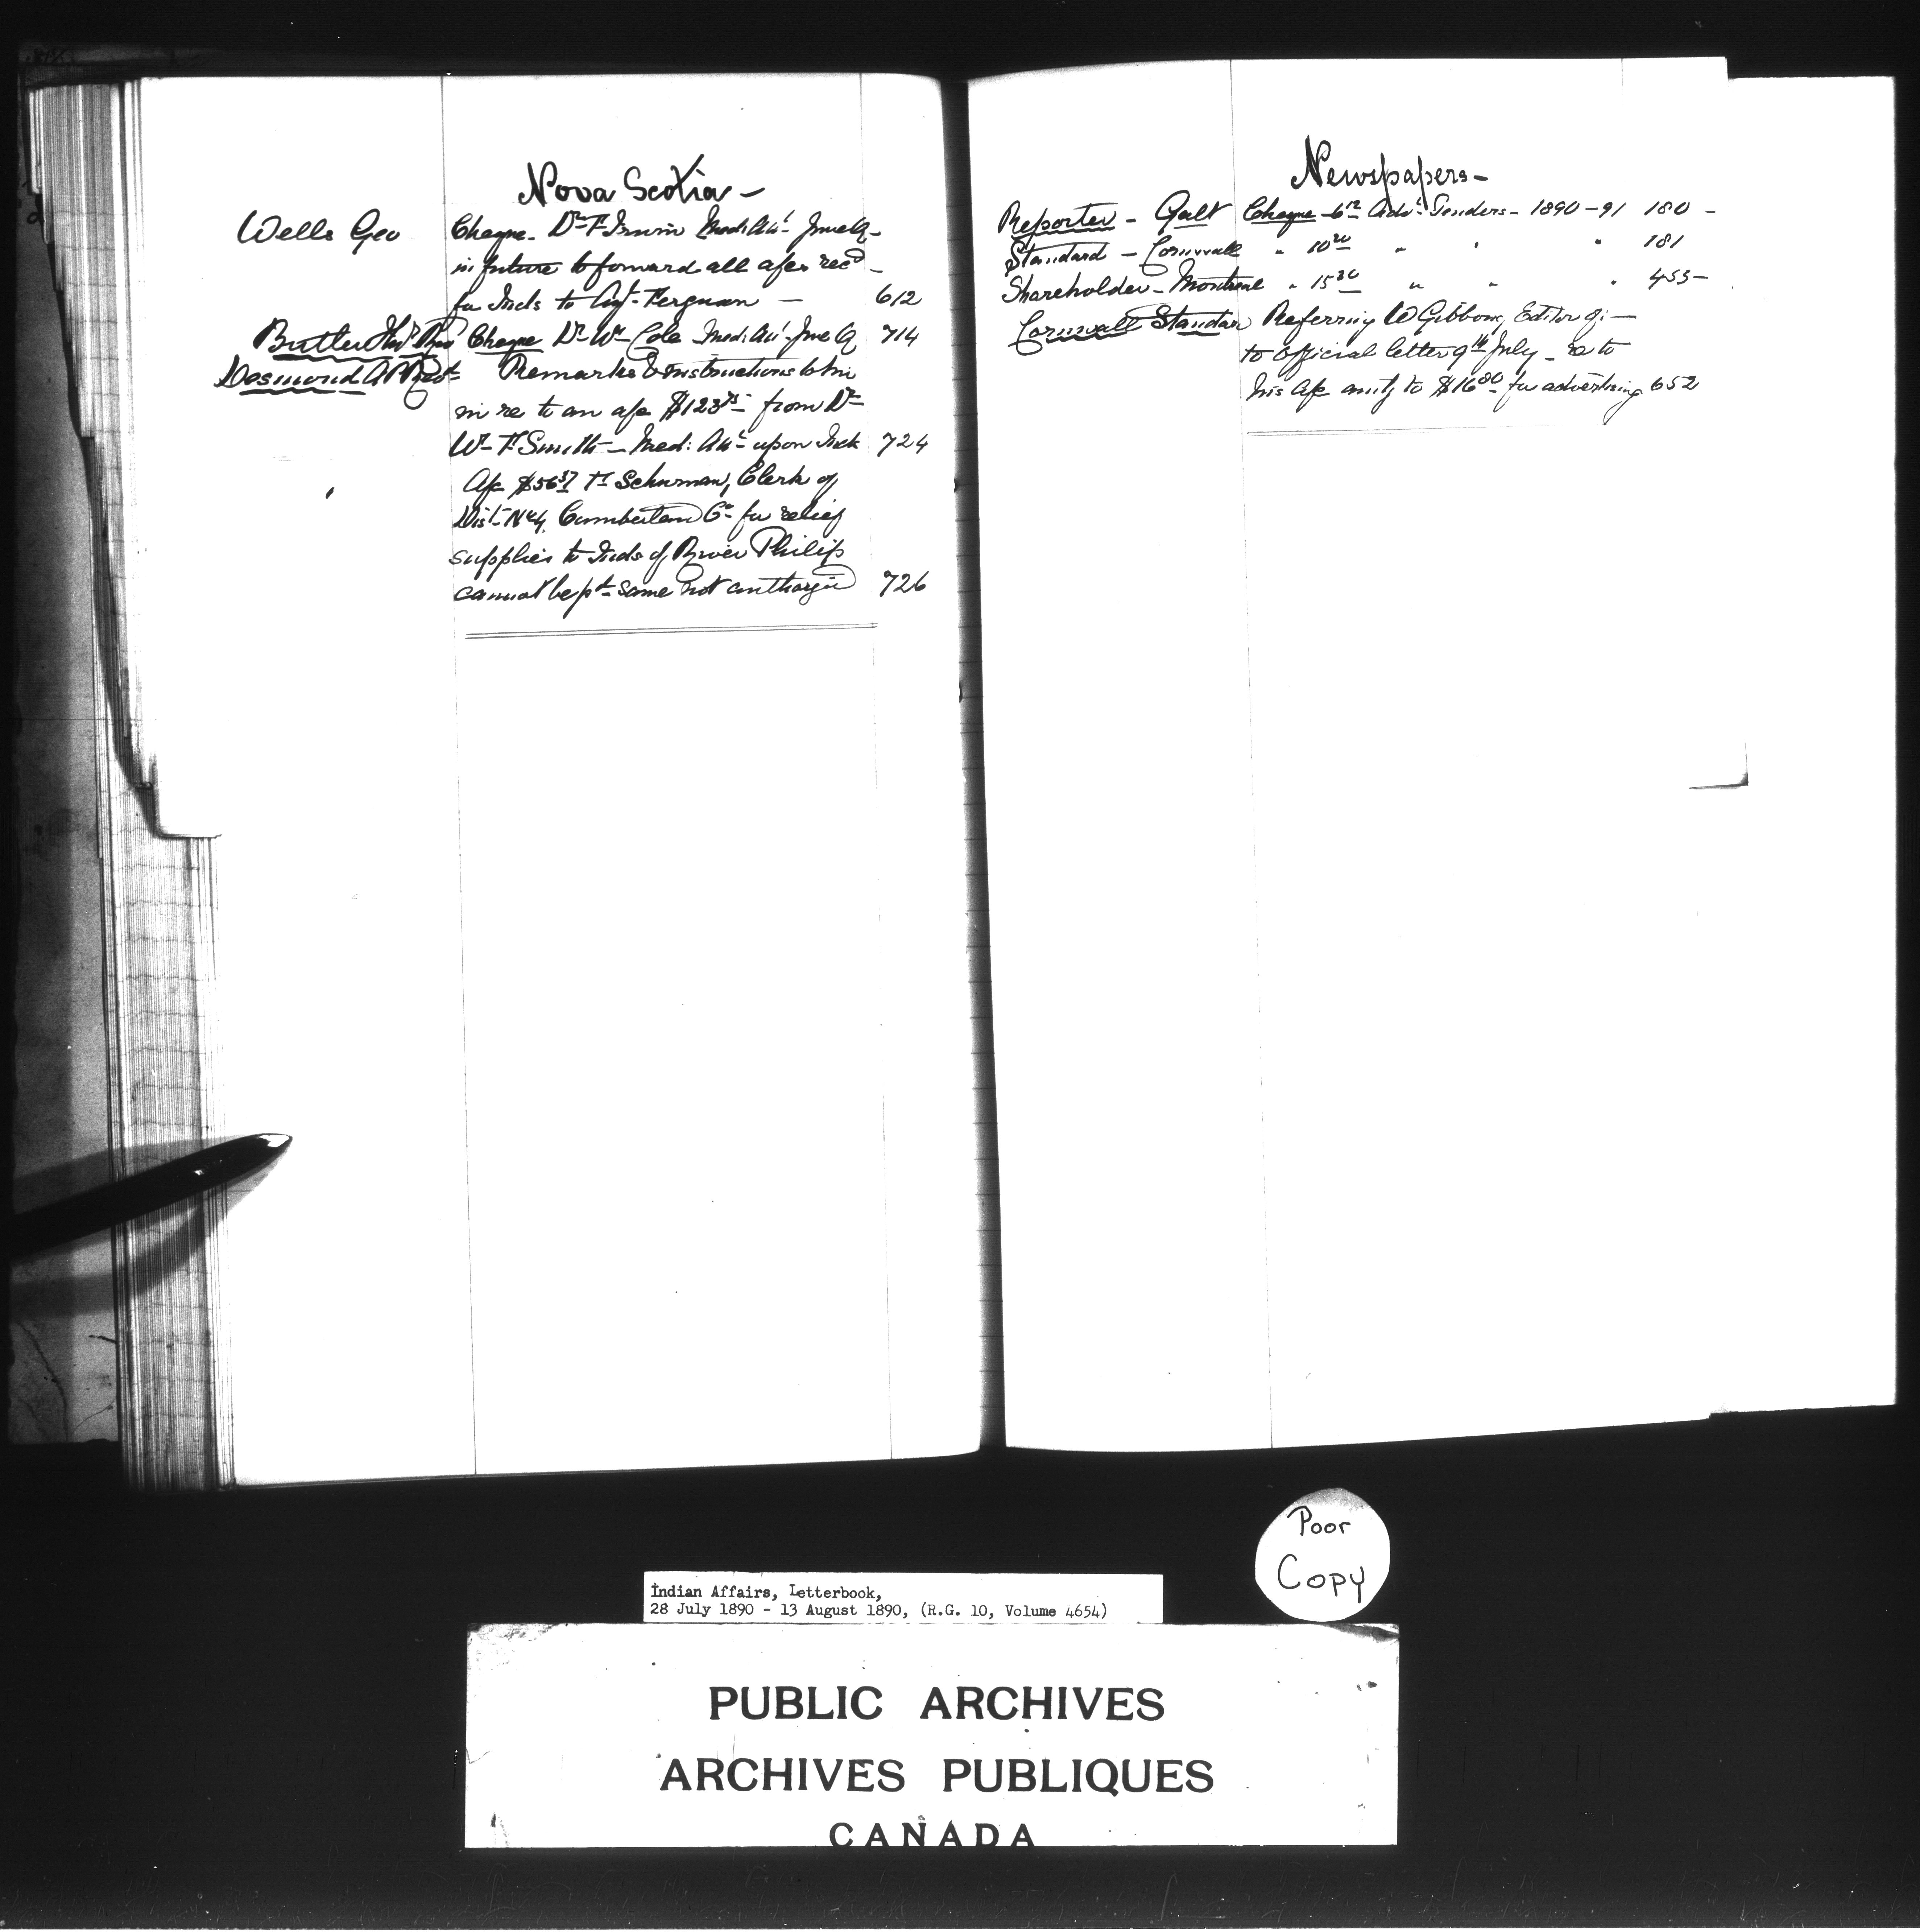 Nova Scotia -
Wells Geo Cheque - Dr F. Irwin Med: Att June Q -
in future to forward all a/cs recd -
for Inds to Agt - Ferguson - 612
Butler Cheque Dr Wm Cole Med: Att June Q 714
Desmond Remarks & instructions to him
in re to an a/c $123 75 from Dr
Wm F Smith - Med: Att upon Sick 724
A/c $56 37 F Schurman, Clerk of
Dist - No 4, Cumberland Co - for relief
supplies to Inds of River Philip
cannot be pd - same not authorized 726
Newspapers -
Reporter - Galt Cheque - 6 12 Adv: Tenders - 1890 - 91 180 -
Standard - Cornwall " 10 20 " " " 181
Shareholder - Montreal " 15 30 " " " 455 -
Cornwall Standar Referring W Gibbons, Editor of: -
to official letter 9th July - re to
his a/c amtg to $16 80 - for advertising 652
Poor
Copy
Indian Affairs, Letterbook,
28 July 1890 - 13 August 1890, (R.G. 10, Volume 4654)
PUBLIC ARCHIVES
ARCHIVES PUBLIQUES
CANADA